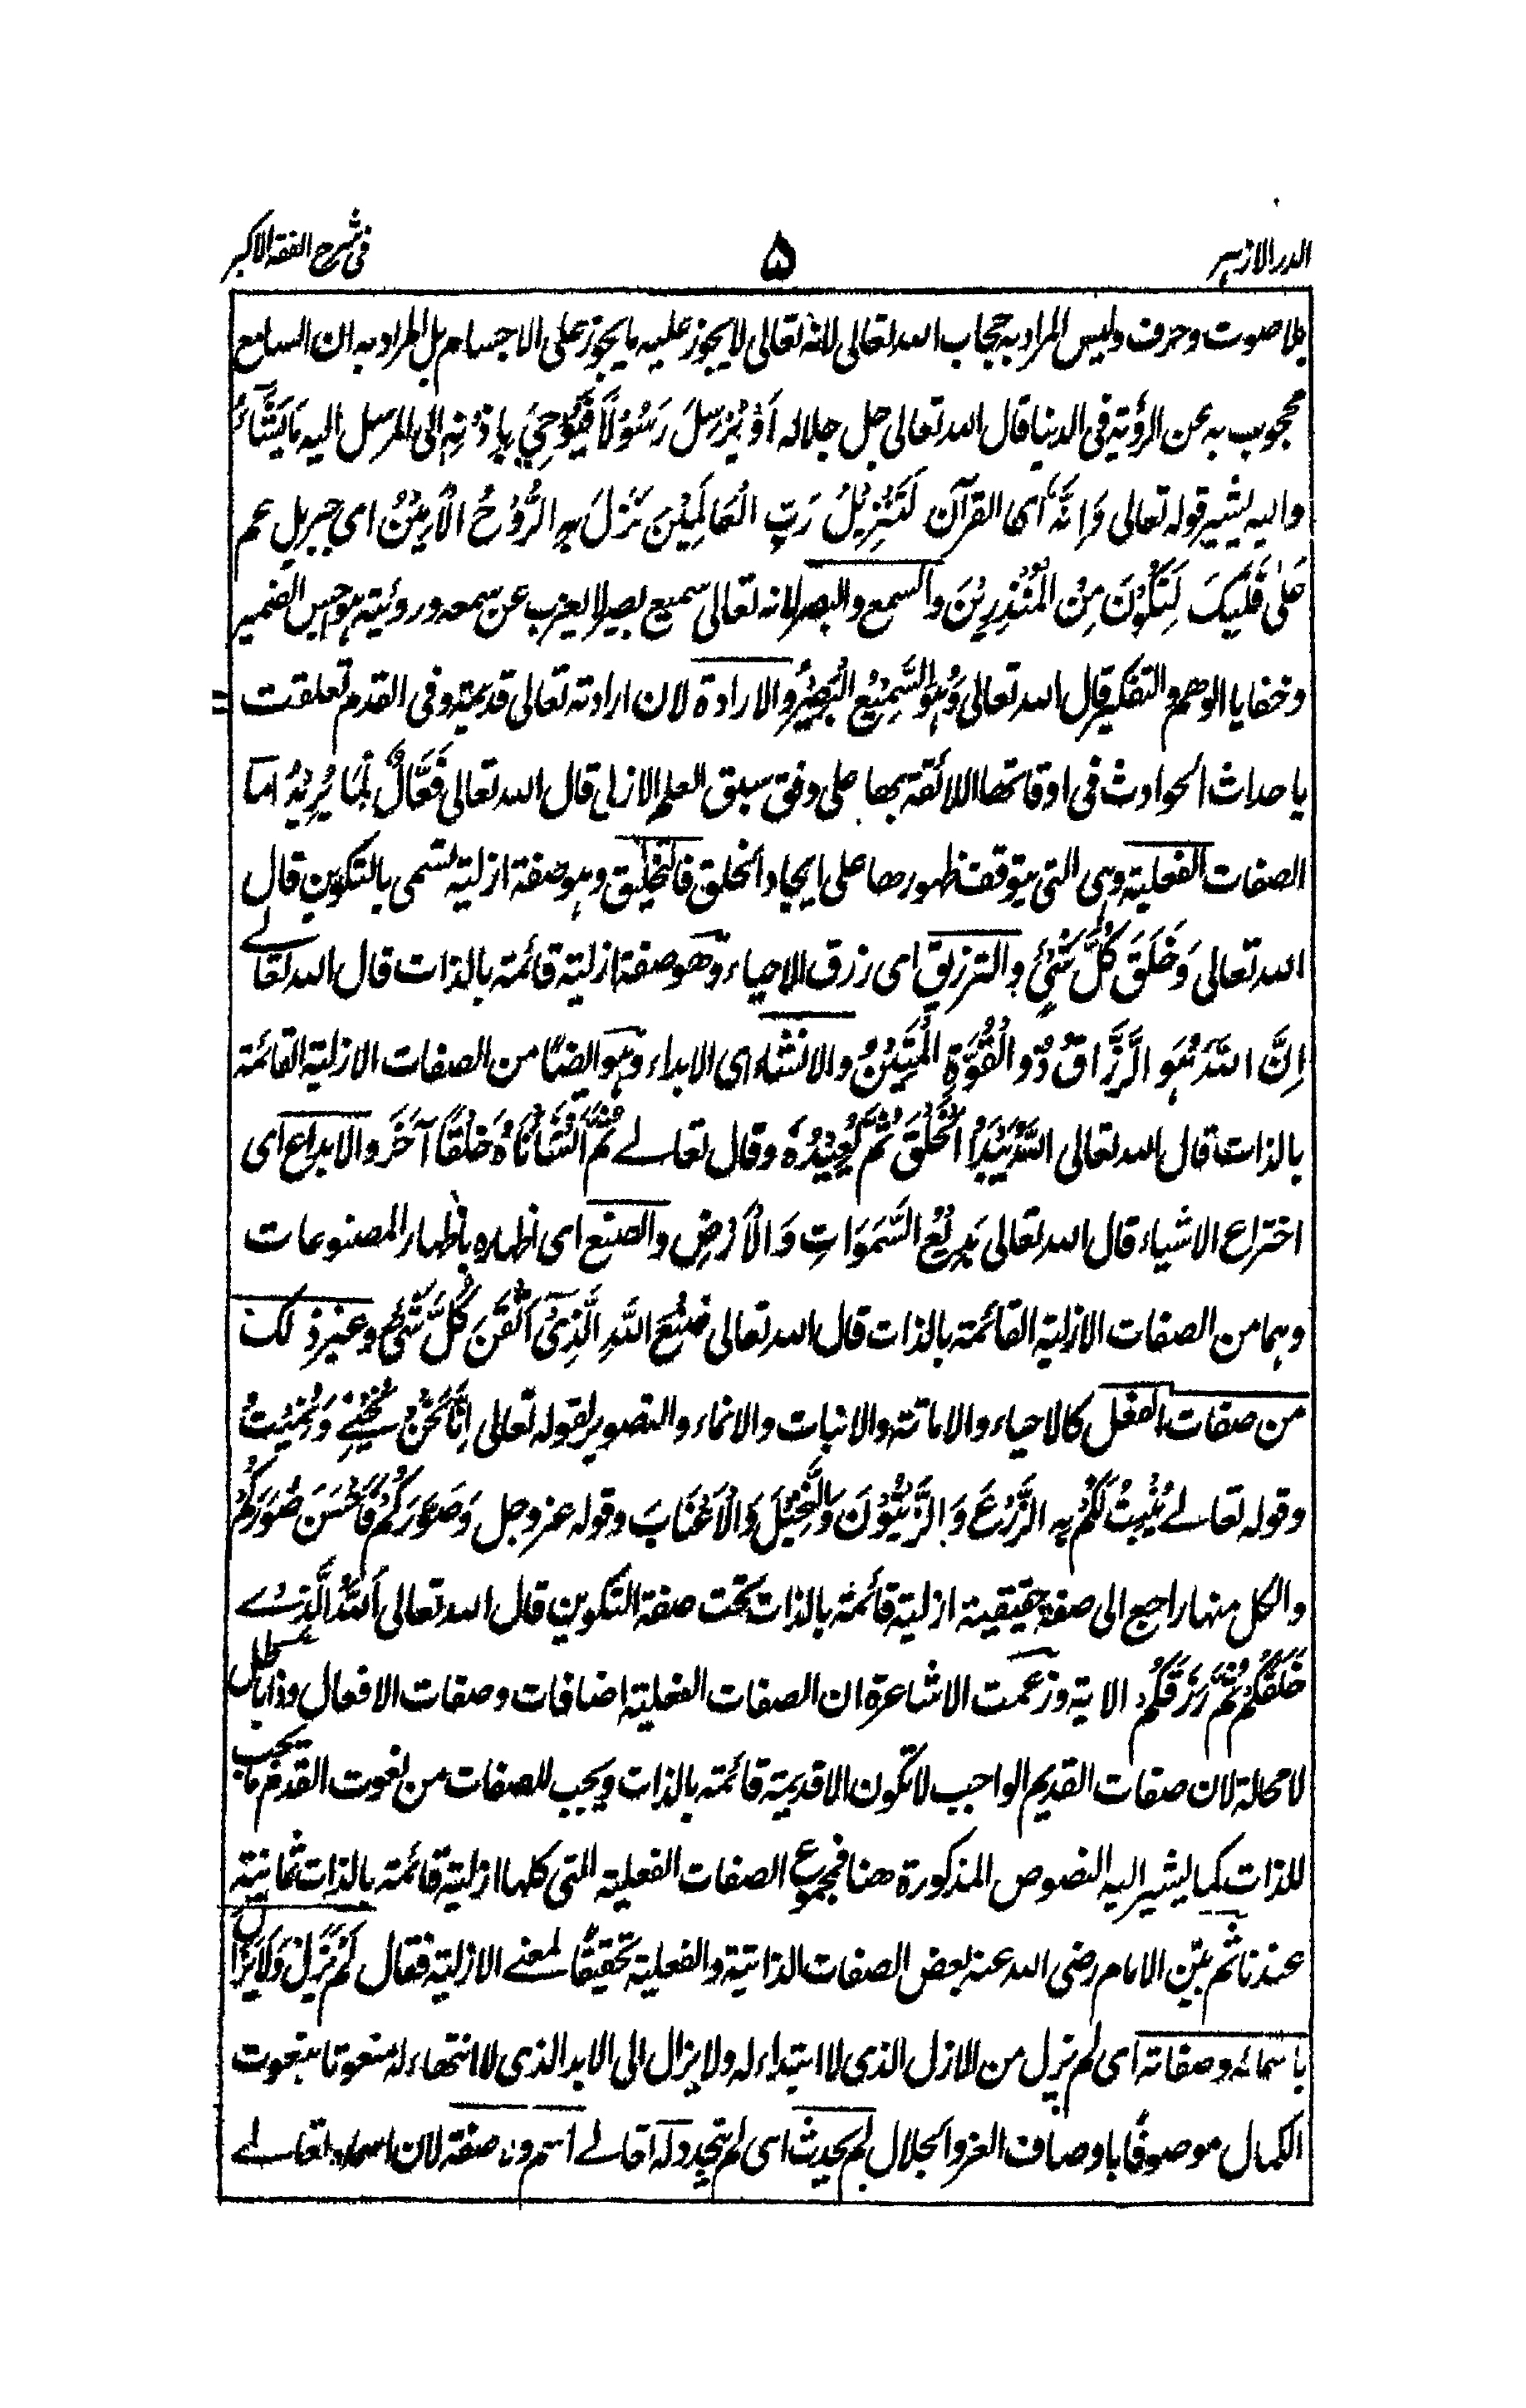 الدر الازہر
۵
فی شرح الفقہ الاکبر
بلا صوت وحرف ولیس المراد بہ حجاب اللہ تعالی لانہ تعالی لا یجوز علیہ ما یجوز علی الاجسام بل المراد بہ ان السامع
محجوب بہ عن الرؤیۃ فی الدنیا قال اللہ تعالی جل جلالہ اَوْ یُرْسِلَ رَسُوْلًا فَیُوْحِیَ بِاِذْنِہٖ الی المرسل الیہ مَا یَشَآءُ
والیہ یشیر قولہ تعالی وَاِنَّہٗ ای القرآن لَتَنْزِیْلُ رَبِّ الْعَالَمِیْنَ نَزَلَ بِہِ الرُّوْحُ الْاَمِیْنُ ای جبریل عم
عَلٰی قَلْبِکَ لِتَکُوْنَ مِنَ الْمُنْذِرِیْنَ والسمع والبصر لانہ تعالی سمیع بصیر لا یعزب عن سمعہ وروئیتہ ہواجیس الضمیر
وخفایا الوھم والتفکیر قال اللہ تعالی وَہُوَ السَّمِیْعُ الْبَصِیْرُ والارادۃ لان ارادتہ تعالی قدیمۃ وفی القدم تعلقت
باحداث الحوادث فی اوقاتھا اللائقۃ بھا علی وفق سبق العلم الازلی قال اللہ تعالی فَعَّالٌ لِّمَا یُرِیْدُ اما
الصفات الفعلیۃ وہی التی یتوقف ظہورھا علی ایجاد الخلق فالتخلیق وہو صفۃ ازلیۃ تسمی بالتکوین قال
اللہ تعالی وَخَلَقَ کُلَّ شَیْئٍ والترزیق ای رزق الاحیاء وھو صفۃ ازلیۃ قائمۃ بالذات قال اللہ تعالے
اِنَّ اللّٰہَ ہُوَ الرَّزَّاقُ ذُو الْقُوَّۃِ الْمَتِیْنُ والانشاء ای الابداء وہو ایضًا من الصفات الازلیۃ القائمۃ
بالذات قال اللہ تعالی اَللّٰہُ یَبْدَؤُا الْخَلْقَ ثُمَّ یُعِیْدُہٗ وقال تعالے ثُمَّ اَنْشَاْنَاہُ خَلْقًا آخَرَ والابداع ای
اختراع الاشیاء قال اللہ تعالی بَدِیْعُ السَّمٰوَاتِ وَالْاَرْضِ والصنع ای اظہارہ باظہار المصنوعات
وہما من الصفات الازلیۃ القائمۃ بالذات قال اللہ تعالی صُنْعَ اللّٰہِ الَّذِیْ اَتْقَنَ کُلَّ شَیْئٍ وغیر ذلک
من صفات الفعل کالاحیاء والاماتۃ والانبات والانماء والتصویر لقولہ تعالی اِنَّا نَحْنُ نُحْیِیْ وَنُمِیْتُ
وقولہ تعالے یُنْبِتُ لَکُمْ بِہِ الزَّرْعَ وَالزَّیْتُوْنَ وَالنَّخِیْلَ وَالْاَعْنَابَ وقولہ عزوجل وَصَوَّرَکُمْ فَاَحْسَنَ صُوَرَکُمْ
والکل منہا راجع الی صفۃ حقیقیۃ ازلیۃ قائمۃ بالذات تحت صفۃ التکوین قال اللہ تعالی اَللّٰہُ الَّذِیْ
خَلَقَکُمْ ثُمَّ رَزَقَکُمْ الایۃ وزعمت الاشاعرۃ ان الصفات الفعلیۃ اضافات وصفات الافعال وذا باطل
لا محالۃ لان صفات القدیم الواجب لا تکون الا قدیمۃ قائمۃ بالذات ویجب للصفات من نعوت القدم ما یجب
للذات کما یشیر الیہ النصوص المذکورۃ ھنا فمجموع الصفات الفعلیۃ التی کلہا ازلیۃ قائمۃ بالذات ثمانیۃ
عندنا ثم بیّن الامام رضی اللہ عنہ بعض الصفات الذاتیۃ والفعلیۃ تحقیقًا لمعنے الازلیۃ فقال لَمْ یَزَلْ وَلَا یَزَالُ
باسمائہ وصفاتہ ای لم یزل من الازل الذی لا ابتداء لہ ولا یزال الی الابد الذی لا انتھاء لہ منعوتا بنعوت
الکمال موصوفًا باوصاف العز والجلال لم یحدث ای لم یتجدد لہ تعالے اسم ولا صفۃ لان اسماءہ تعالے